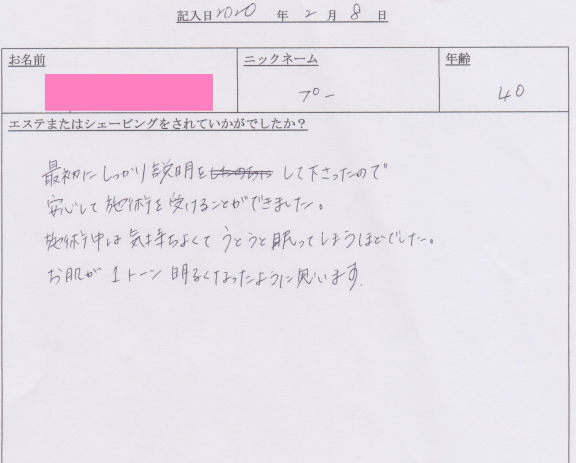 記入日2020年2月8日
お名前 ニックネーム 年齢
プー 40
エステまたはシェービングをされていかがでしたか?
最初にしっかり説明をして下さったので
安心して施術を受けることができました。
施術中は気持ちよくてうとうと眠ってしまうほどでした。
お肌が1トーン明るくなったように思います。